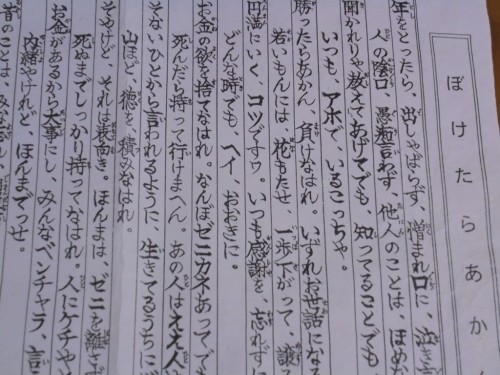 ぼけたらあか
年をとったら、出しゃばらず、憎まれ口に、泣き
人の陰口、愚痴言わず、他人のことは、ほめ
聞かれりゃ教えてあげてでも、知ってることでも
いつも、アホで、いるこっちゃ。
勝ったらあかん、負けなはれ。いずれお世話になる
若いもんには、花もたせ、一歩下がって、譲る
円満にいく、コツですワ。いつも感謝を、忘れず
どんな時でも、ヘイ、おおきに。
お金の欲を捨てなはれ。なんぼゼニカネあってでも
死んだら持って行けまへん。あの人はええ人
そないひとから言われるように、生きてるうちに
山ほど、徳を、積みなはれ。
そやけど、それは表向き。ほんまは、ゼニを離さ
死ぬまでしっかり持ってなはれ。人にケチや
お金があるから大事にし、みんなベンチャラ、言
内緒やけれど、ほんまでっせ。
昔のことは、みな